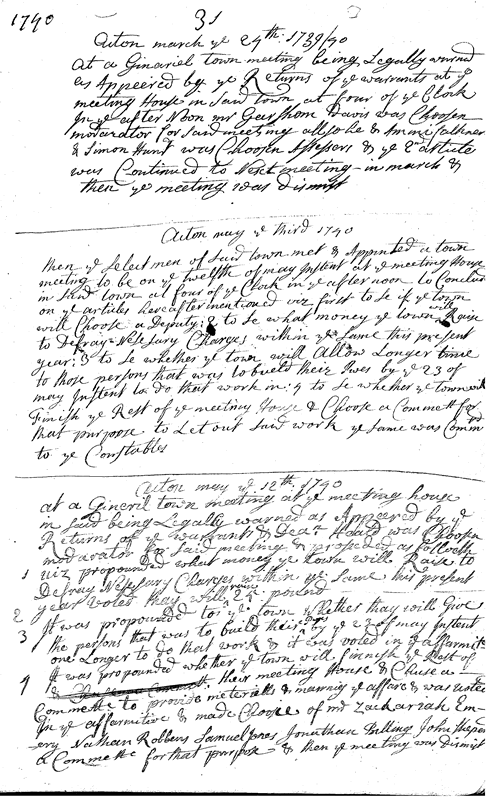 1740
31
Acton march ye 24th: 1739/40
At a Ginariel town meeting being Legally warned
as Appeered by ye Returns of ye warrants at ye
meeting House in Said town at four of ye Clock
In ye after Noon mr Gershom Davis was Choosen
moderator for Said meeting allso he & Ammi Falkner
& Simon Hunt was Choosen Assessers & ye 2nd article
was Continued to Next meeting in march &
then ye meeting was dismist
Acton may ye third 1740
then ye Select men of Said town met & Appinted a town
meeting to be on ye twelfth of may Instent at ye meeting House
in Said town at four of ye Clock in ye after noon to Conclud
on ye articles hereafter mentioned viz first to Se if ye town
will Choose a Deputy: 2 to Se what money ye town will Raise
to Defray Nessary Charges within ye Same this present
year: 3 to Se whether ye town will Allow Longer time
to those persons that was to bueld their by ye 23 of
may Instent to do that work in: 4 to Se whether ye town will
Finish ye Rest of ye meeting House & Choose a Commett for
that purpose to Let out Said work ye Same was Commtd
to ye Constables
Acton may ye 12th: 1740
at a Gineril town meeting at ye meeting house
in Said being Legally warned as Appeered by ye
Returns of ye warrants & Dean was Choosen
modarator for Said meeting & proseded as followeth
1 viz propounded what money ye town will Raise to
Defray Nessary Charges within ye Same this present
year voted thay will pound
2
3 It was propounded to ye town whether thay will Give
the persons that was to build their by ye 23 of may Instent
one Longer to do that work & it was voted in ye affarmite
4 It was propounded whether ye town will finnish ye Rest of
& their meeting House & Chuse a
Commette to provide meterials & mannig ye affare & was voted
In ye affarmitive & made Choose of mr Zachariah Em-
ery Nathan Robbens Samuel Jones Jonathan Billing John Sheperd
a Commette for that purpose & then ye meeting was dismist